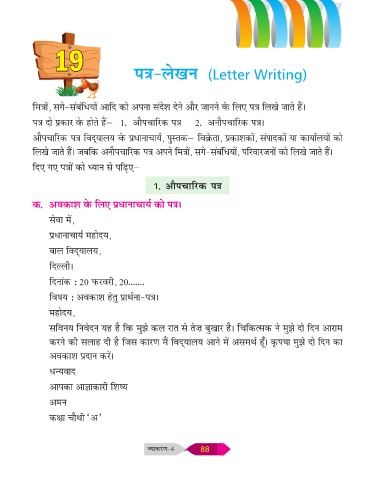 19
पत्र-लेखन (Letter Writing)
मित्रों, सगे-संबंधियों आदि को अपना संदेश देने और जानने के लिए पत्र लिखे जाते हैं।
पत्र दो प्रकार के होते हैं– 1. औपचारिक पत्र 2. अनौपचारिक पत्र।
औपचारिक पत्र विद्यालय के प्रधानाचार्य, पुस्तक– विक्रेता, प्रकाशकों, संपादकों या कार्यालयों को
लिखे जाते हैं। जबकि अनौपचारिक पत्र अपने मित्रों, सगे-संबंधियों, परिवारजनों को लिखे जाते हैं।
दिए गए पत्रों को ध्यान से पढ़िए–
1. औपचारिक पत्र
क. अवकाश के लिए प्रधानाचार्य को पत्र।
सेवा में,
प्रधानाचार्य महोदय,
बाल विद्यालय,
दिल्ली।
दिनांक : 20 फरवरी, 20.......
विषय : अवकाश हेतु प्रार्थना-पत्र।
महोदय,
सविनय निवेदन यह है कि मुझे कल रात से तेज़ बुखार है। चिकित्सक ने मुझे दो दिन आराम
करने की सलाह दी है जिस कारण मैं विद्यालय आने में असमर्थ हूँ। कृपया मुझे दो दिन का
अवकाश प्रदान करें।
धन्यवाद
आपका आज्ञाकारी शिष्य
अमन
कक्षा चौथी ‘अ’
व्याकरण-4 88